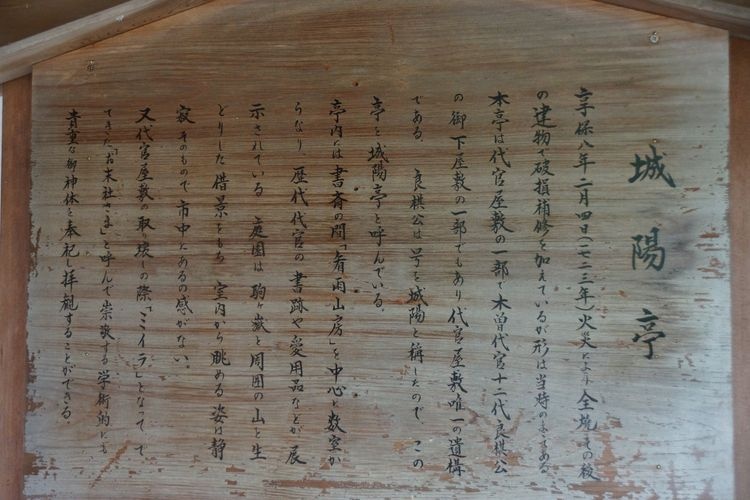 城陽亭
享保八年二月四日(一七二三年)火災により全焼その後
の建物で破損補修を加えているが形は当時のまゝである
本亭は代官屋敷の一部で木曽代官十二代良棋公
の御下屋敷の一部でもあり代官屋敷唯一の遺構
である。良棋公は号を城陽と稱したので、この
亭を城陽亭と呼んでいる。
亭内には書斎の間「看雨山房」を中心に数室か
らなり 歴代代官の書跡や愛用品などが展
示されている 庭園は駒ヶ嶽と周囲の山を生
どりした借景をもち 室内から眺める姿は静
寂そのもので市中にあるの感がない。
又代官屋敷の取壊しの際「ミイラ」となって で
てきた「お末社さま」と呼んで崇敬する学術的にも
貴重な御神体を奉祀し拝観することができる。